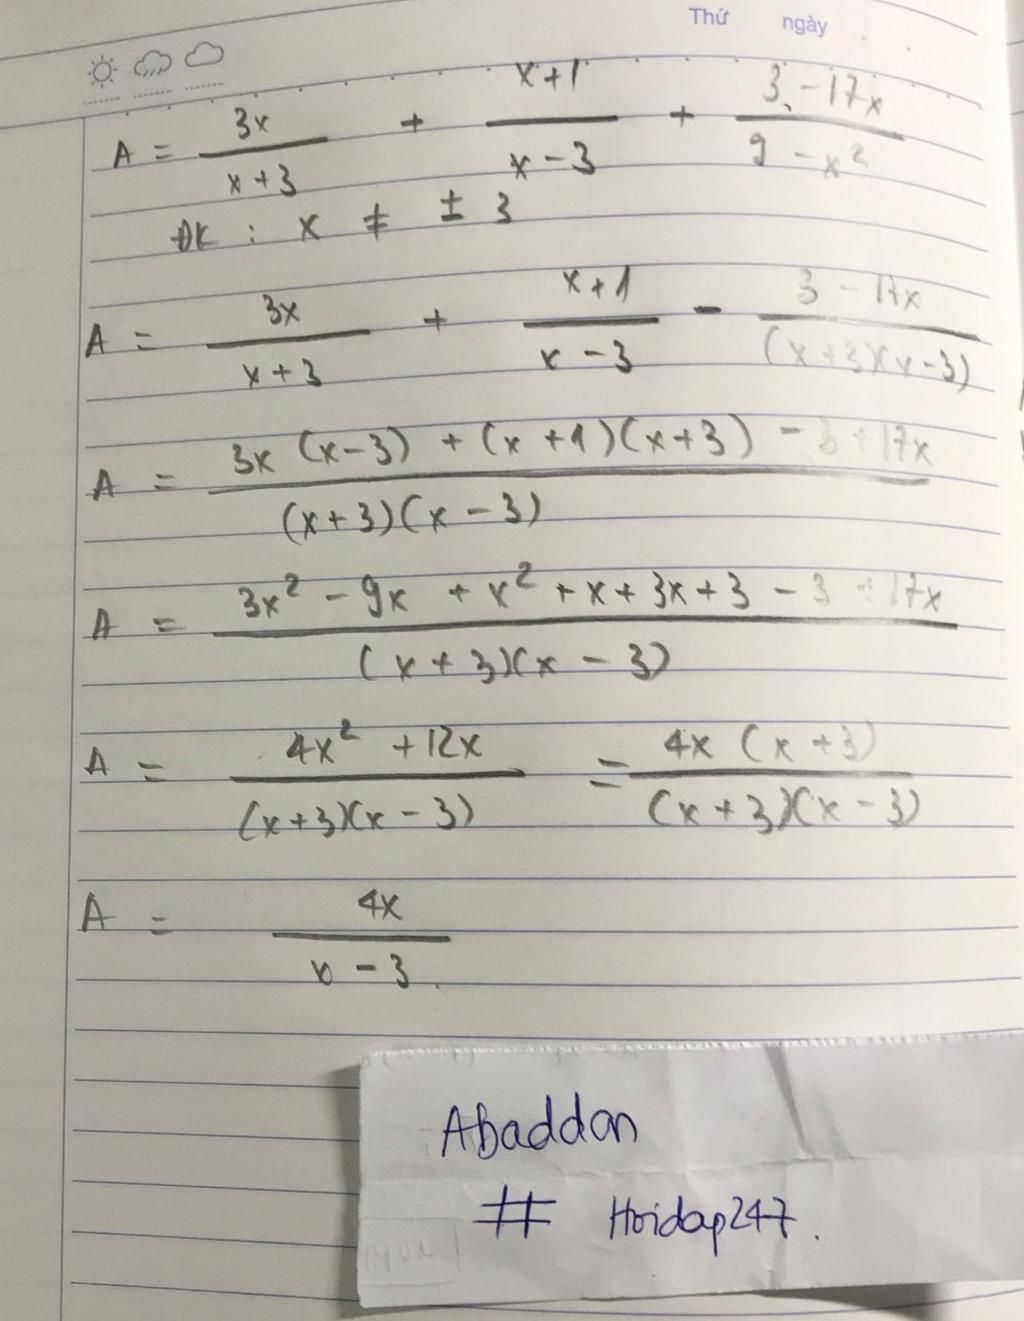 Thứ ngày
A = \frac{3x}{x+3} + \frac{x+1}{x-3} + \frac{3-17x}{9-x^2}
ĐK : x ≠ ± 3
A = \frac{3x}{x+3} + \frac{x+1}{x-3} - \frac{3-17x}{(x+3)(x-3)}
A = \frac{3x(x-3)+(x+1)(x+3)-3+17x}{(x+3)(x-3)}
A = \frac{3x^2-9x+x^2+x+3x+3-3+17x}{(x+3)(x-3)}
A = \frac{4x^2+12x}{(x+3)(x-3)} = \frac{4x(x+3)}{(x+3)(x-3)}
A = \frac{4x}{x-3}
Abaddon
# Hoidap247.